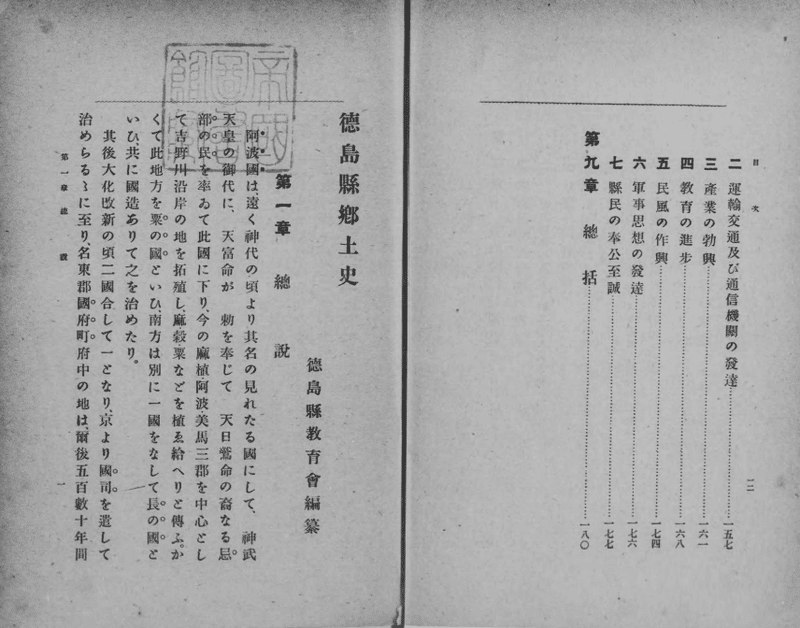 目次
二 運輸交通及び通信機關の發達 一五七
三 產業の勃興 一六一
四 教育の進步 一六八
五 民風の作興 一七四
六 軍事思想の發達 一七六
七 縣民の奉公至誠 一七七
第九章 總括 一八〇
一二
德島縣鄕土史
德島縣教育會編纂
第一章 總說
阿波國は、遠く神代の頃より其名の見れたる國にして、神武
天皇の御代に、天富命が 勅を奉じて 天日鷲命の裔なる忌
部の民を率ゐて此國に下り、今の麻植、阿波美馬三郡を中心とし
て吉野川沿岸の地を拓殖し、麻穀、粟などを植ゑ給へりと傳ふ。か
くて此地方を粟の國といひ、南方は別に一國をなして長の國と
いひ、共に國造ありて之を治めたり。
其後大化改新の頃二國合して一となり、京より國司を遣して
治めらるゝに至り、名東郡國府町府中の地は、爾後五百數十年間
第一章 總說
一
帝國圖書館藏